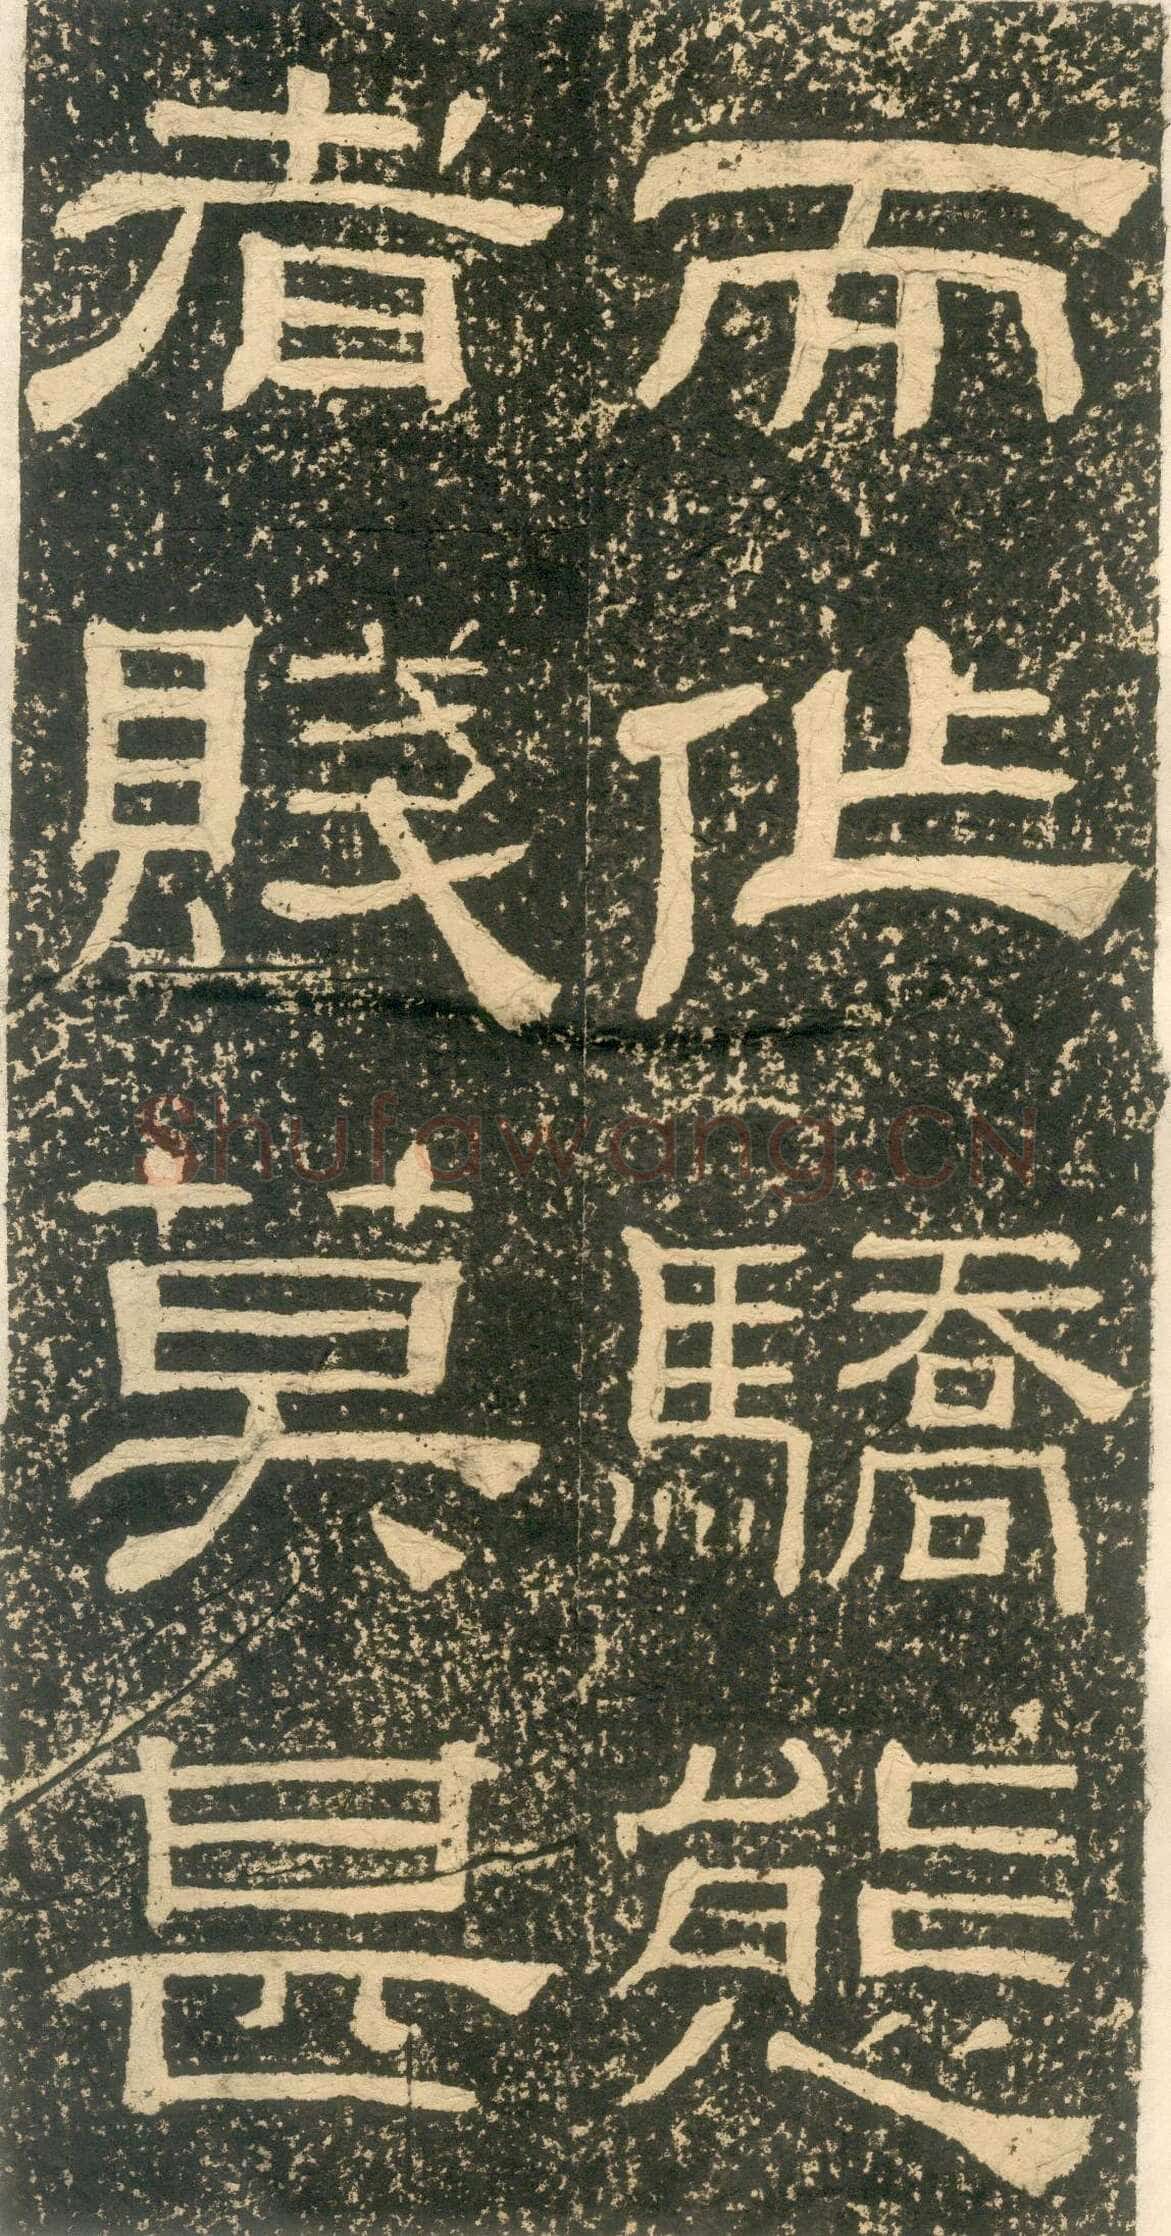 而作驕態
者賤莫甚
Shufawang.CN